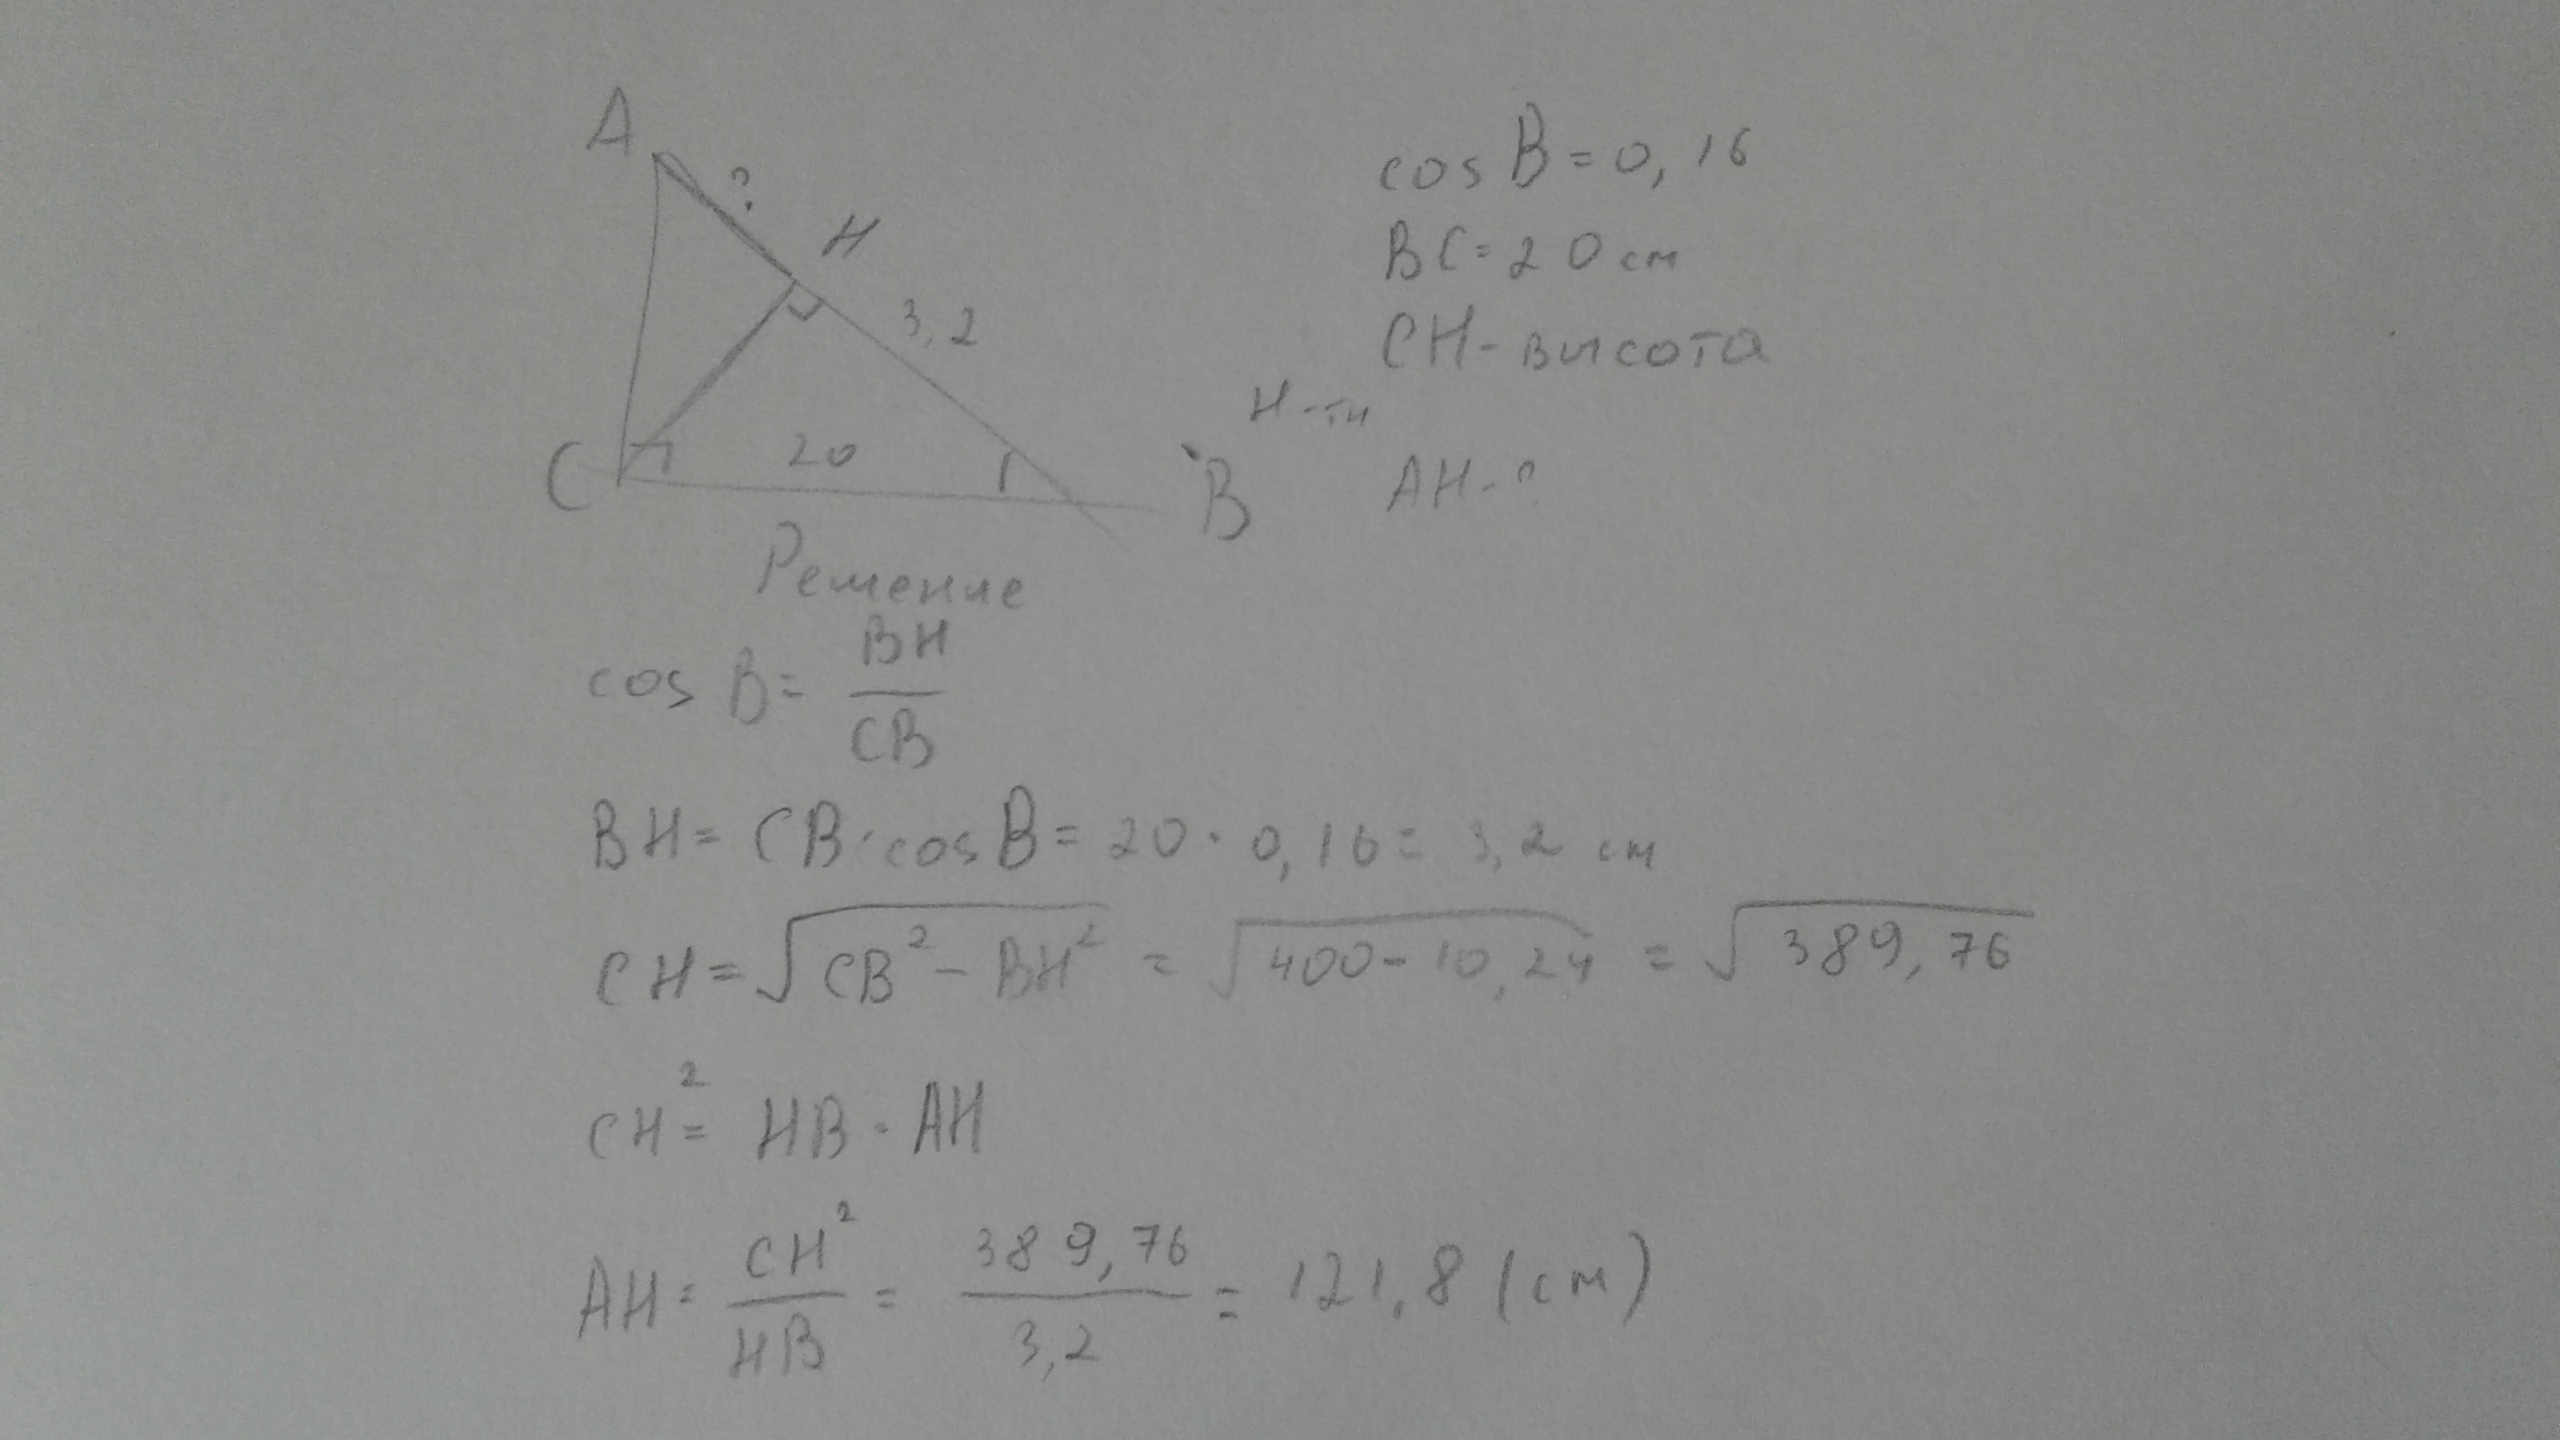 A
?
H
3,2
C
20
B
cos B = 0,16
BC = 20 см
CH - высота
Н-ти
AH - ?
Решение
cos B = BH / CB
BH = CB · cos B = 20 · 0,16 = 3,2 см
CH = √(CB² - BH²) = √(400 - 10,24) = √389,76
CH² = HB · AH
AH = CH² / HB = 389,76 / 3,2 = 121,8 (см)